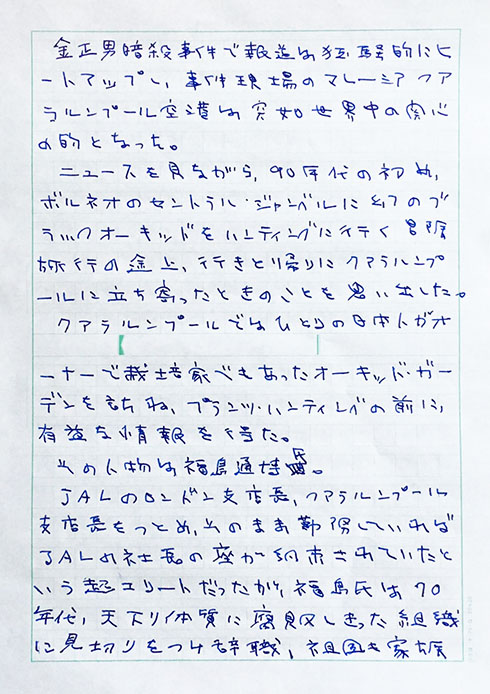 金正男暗殺事件で報道は狂躁的にヒ
ートアップし、事件現場のマレーシアクア
ラルンプール空港は突如世界中の関心
の的となった。
ニュースを見ながら、90年代の初め、
ボルネオのセントラル・ジャングルに幻のブ
ラックオーキッドをハンティングに行く冒険
旅行の途上、行きと帰りにクアラルンプ
ールに立ち寄ったときのことを思い出した。
クアラルンプールではひとりの日本人がオ
ーナーで栽培家でもあったオーキッド・ガー
デンをたずね、プランツ・ハンティングの前に、
有益な情報を得た。
その人物は福島通博氏。
JALのロンドン支店長、クアラルンプール
支店長をつとめ、そのまま勤務していれば
JALの社長の座が約束されていたと
いう超エリートだったが、福島氏は70
年代、天下り体質に腐敗しきった組織
に見切りをつけ辞職、祖国も家族